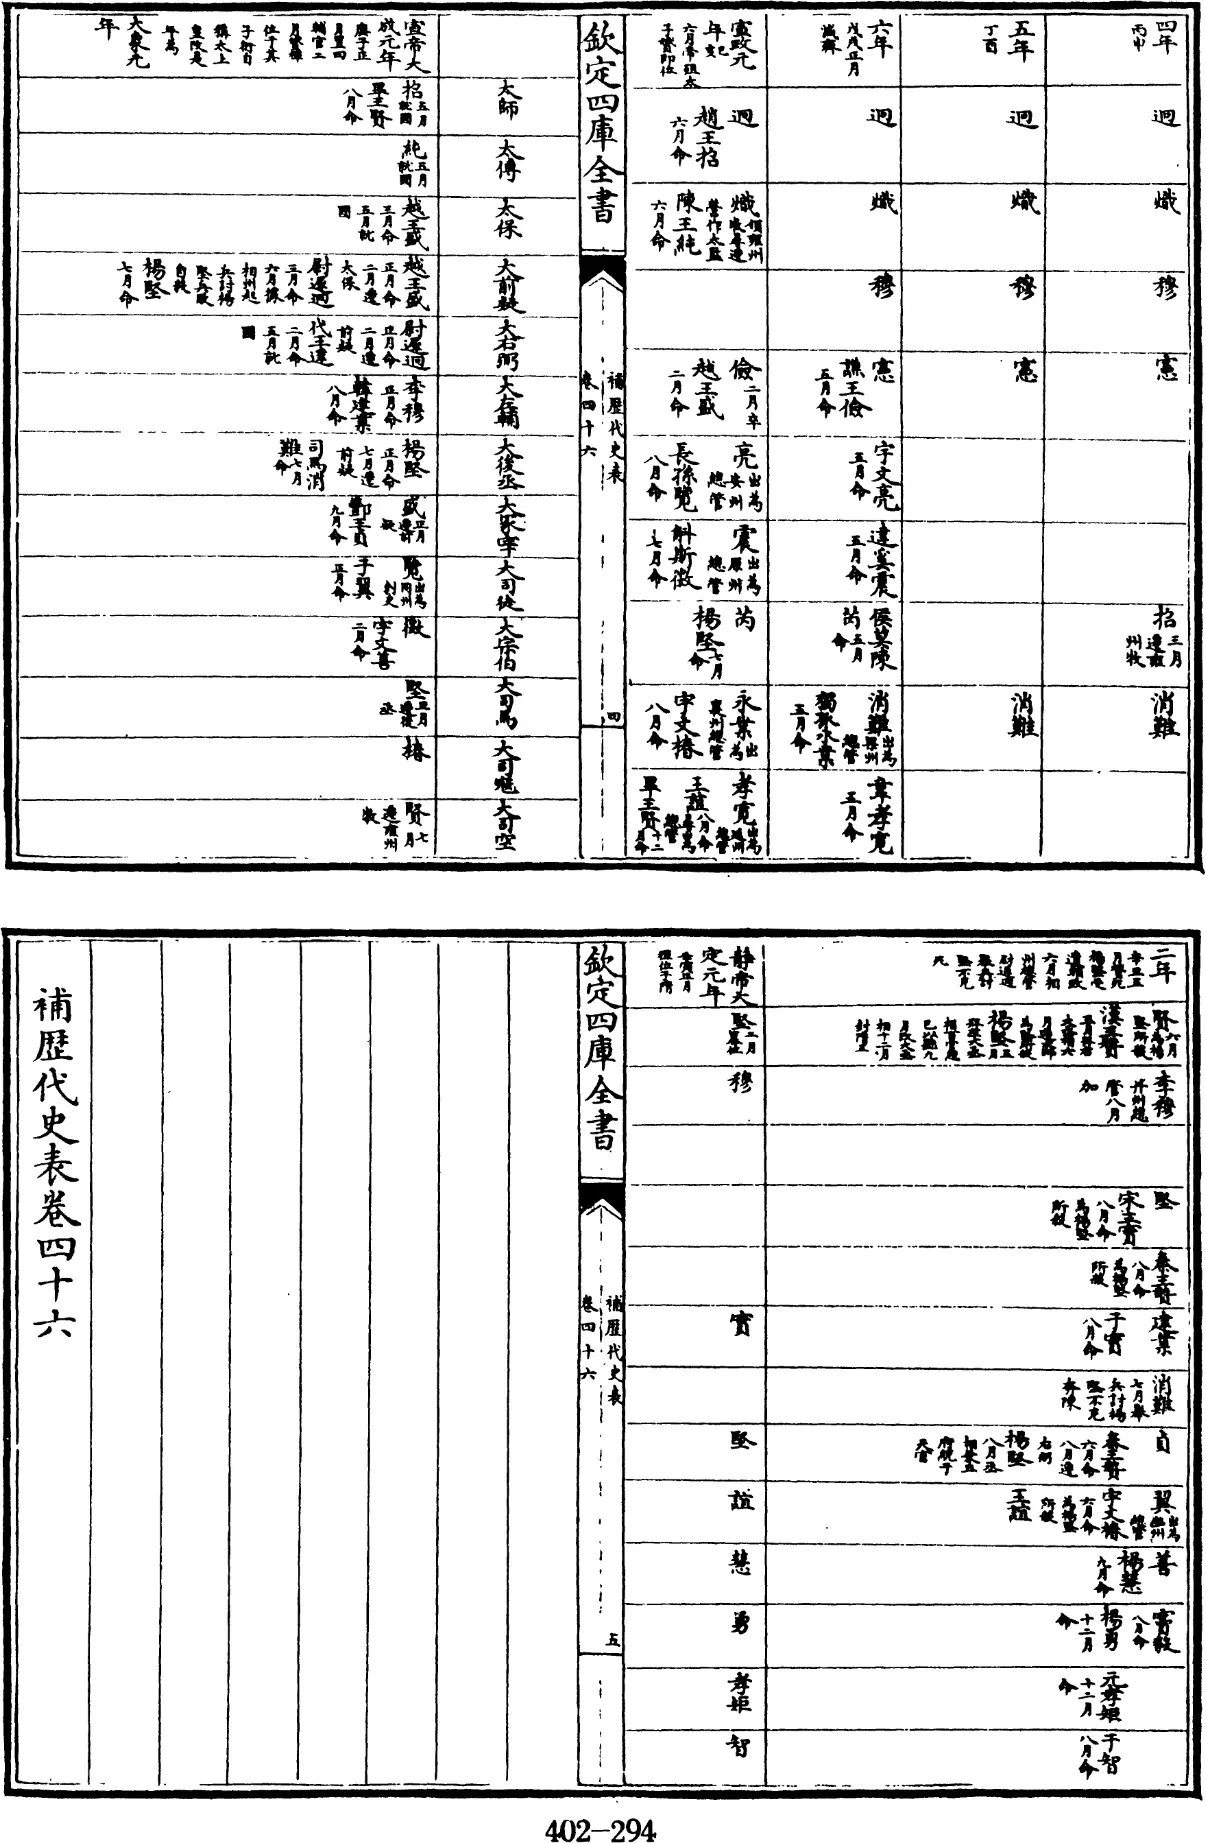 四年 丙申
迥
熾
穆
憲
招 三月遷雍州牧
消難
五年 丁酉
迥
熾
穆
憲
消難
六年 戊戌正月滅齊
迥
熾
穆
憲 譙王儉 五月命
宇文亮 五月命
達奚震 五月命
侯莫陳芮 五月命
消難 出為梁州總管 獨孤永業 五月命
韋孝寬 五月命
宣政元年 六月帝殂太子贇即位
迥 趙王招 六月命
熾 陳王純 六月命
儉 二月卒 越王盛 二月命
亮 出為安州總管 長孫覽 八月命
震 出為原州總管 斛斯徵 七月命
芮 楊堅 七月命
永業 出為襄州總管 宇文椿 八月命
孝寬 王誼 八月命 畢王賢 十二月命
欽定四庫全書
補歷代史表
卷四十六
四
太師
太傅
太保
大前疑
大右弼
大左輔
大後丞
大冢宰
大司徒
大宗伯
大司馬
大司寇
大司空
宣帝大成元年
大象元年
招 五月就國 畢王賢 八月命
純 五月就國
越王盛 三月命 五月就國
越王盛 正月命 二月遷太保 尉遲迥 三月命 六月據相州起兵討楊堅兵敗自殺 楊堅 七月命
尉遲迥 正月命 二月遷前疑 代王達 二月命 五月就國
李穆 正月命 韓建業 八月命
楊堅 正月命 七月遷前疑 司馬消難 七月命
盛 正月遷前疑 酆王貞 九月命
覽 出為同州刺史 于翼 正月命
徵 宇文善 二月命
堅 正月遷後丞
椿
賢 七月遷雍州牧
二年
李穆 并州總管 八月加
堅 宋王實 八月命 為楊堅所殺
秦王贄 八月命 為楊堅所殺
建業 于寔 八月命
消難 七月舉兵討楊堅不克奔陳
貞 秦王贄 六月命 八月遷右弼 楊堅
翼 出為幽州總管 宇文椿 六月命 為楊堅所殺 王誼
善 楊慧 九月命
竇毅 八月命 楊勇 十二月命
元孝矩 十二月命
于智 八月命
靜帝大定元年
堅 二月篡位
穆
寔
堅
誼
慧
勇
孝矩
智
欽定四庫全書
補歷代史表
卷四十六
五
補歷代史表卷四十六
402-294